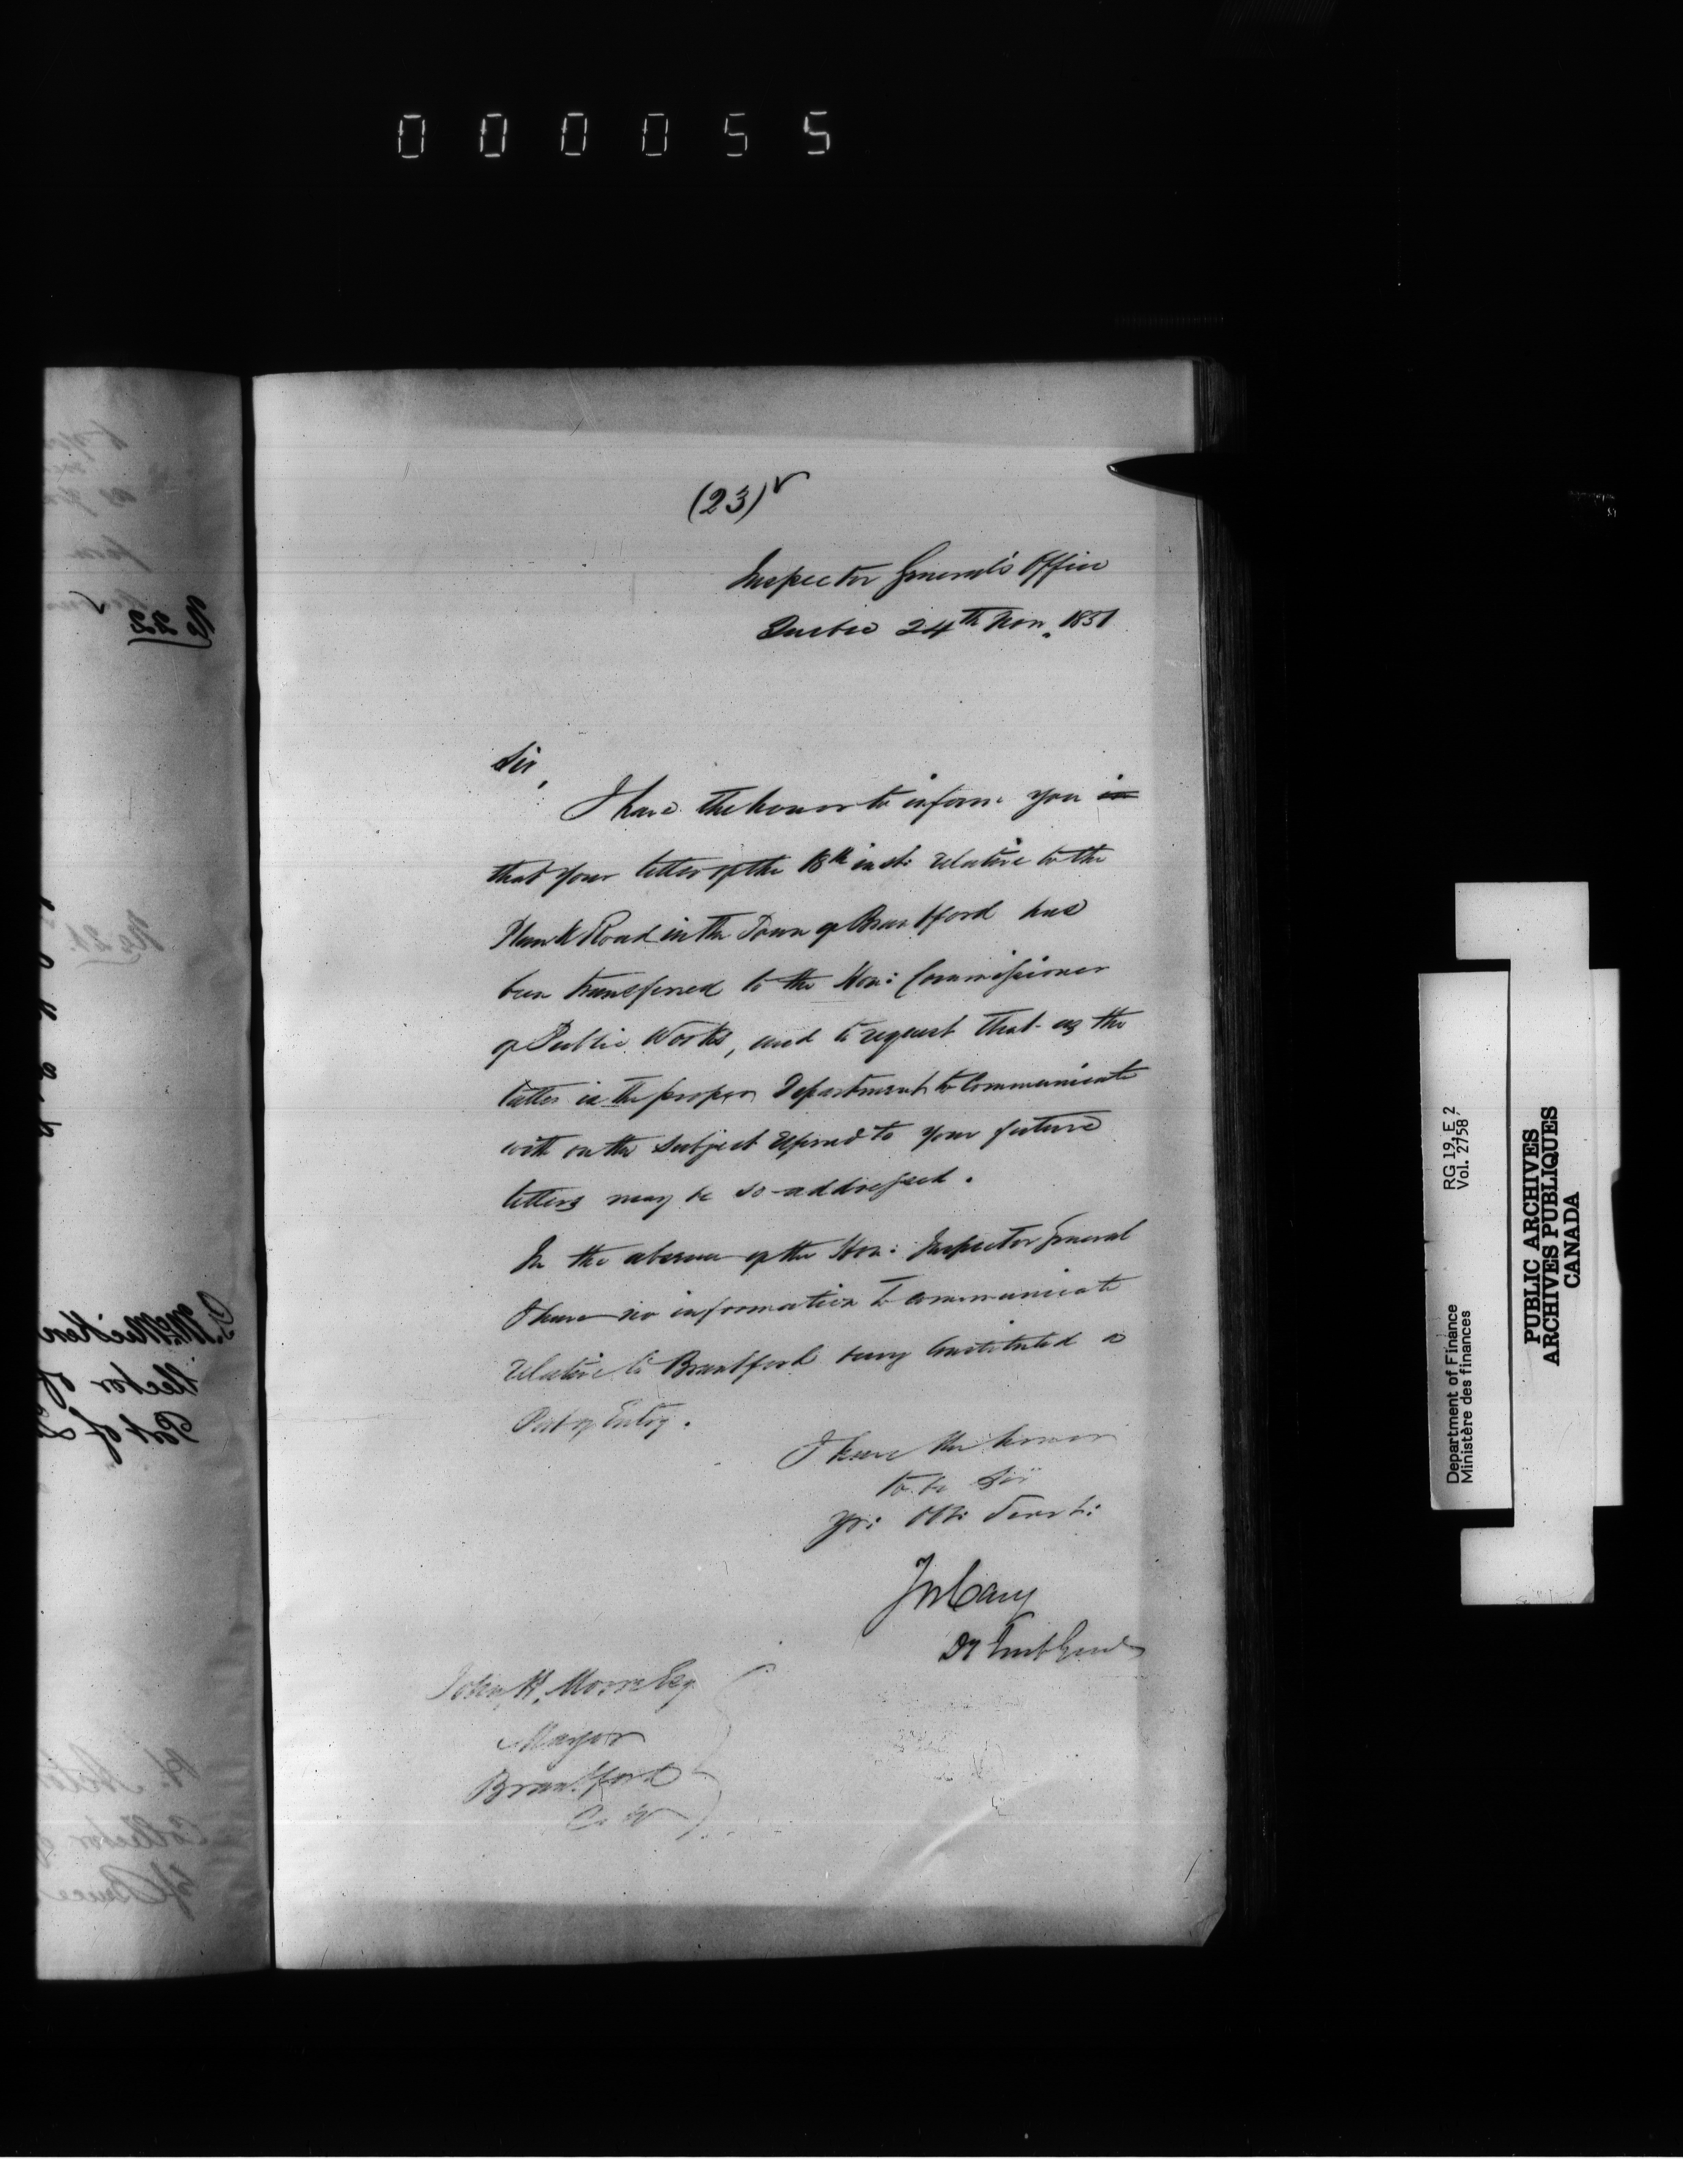 000055
(23)
Inspector General's Office
Quebec 24th Nov. 1851
Sir,
I have the honor to inform you in
that your letter of the 18th inst: relative to the
Plank Road in the Town of Brantford has
been transferred to the Hon: Commissioner
of Public Works, and to request that as the
latter is the proper Department to Communicate
with on the subject referred to your future
letters may be so addressed.
In the absence of the Hon: Inspector General
I have no information to communicate
relative to Brantford being Constituted a
Port of Entry.
I have the honor
to be Sir
Yr: Obt: Servt:
Jos Cary
Dy Inspt Genl
John H. Moore Esq
Mayor
Brantford
C. W
No 22
No 21
McMicken
llector of
Port of
Collector of
Bruce
RG 19, E 2
Vol. 2758
Department of Finance
Ministère des finances
PUBLIC ARCHIVES
ARCHIVES PUBLIQUES
CANADA